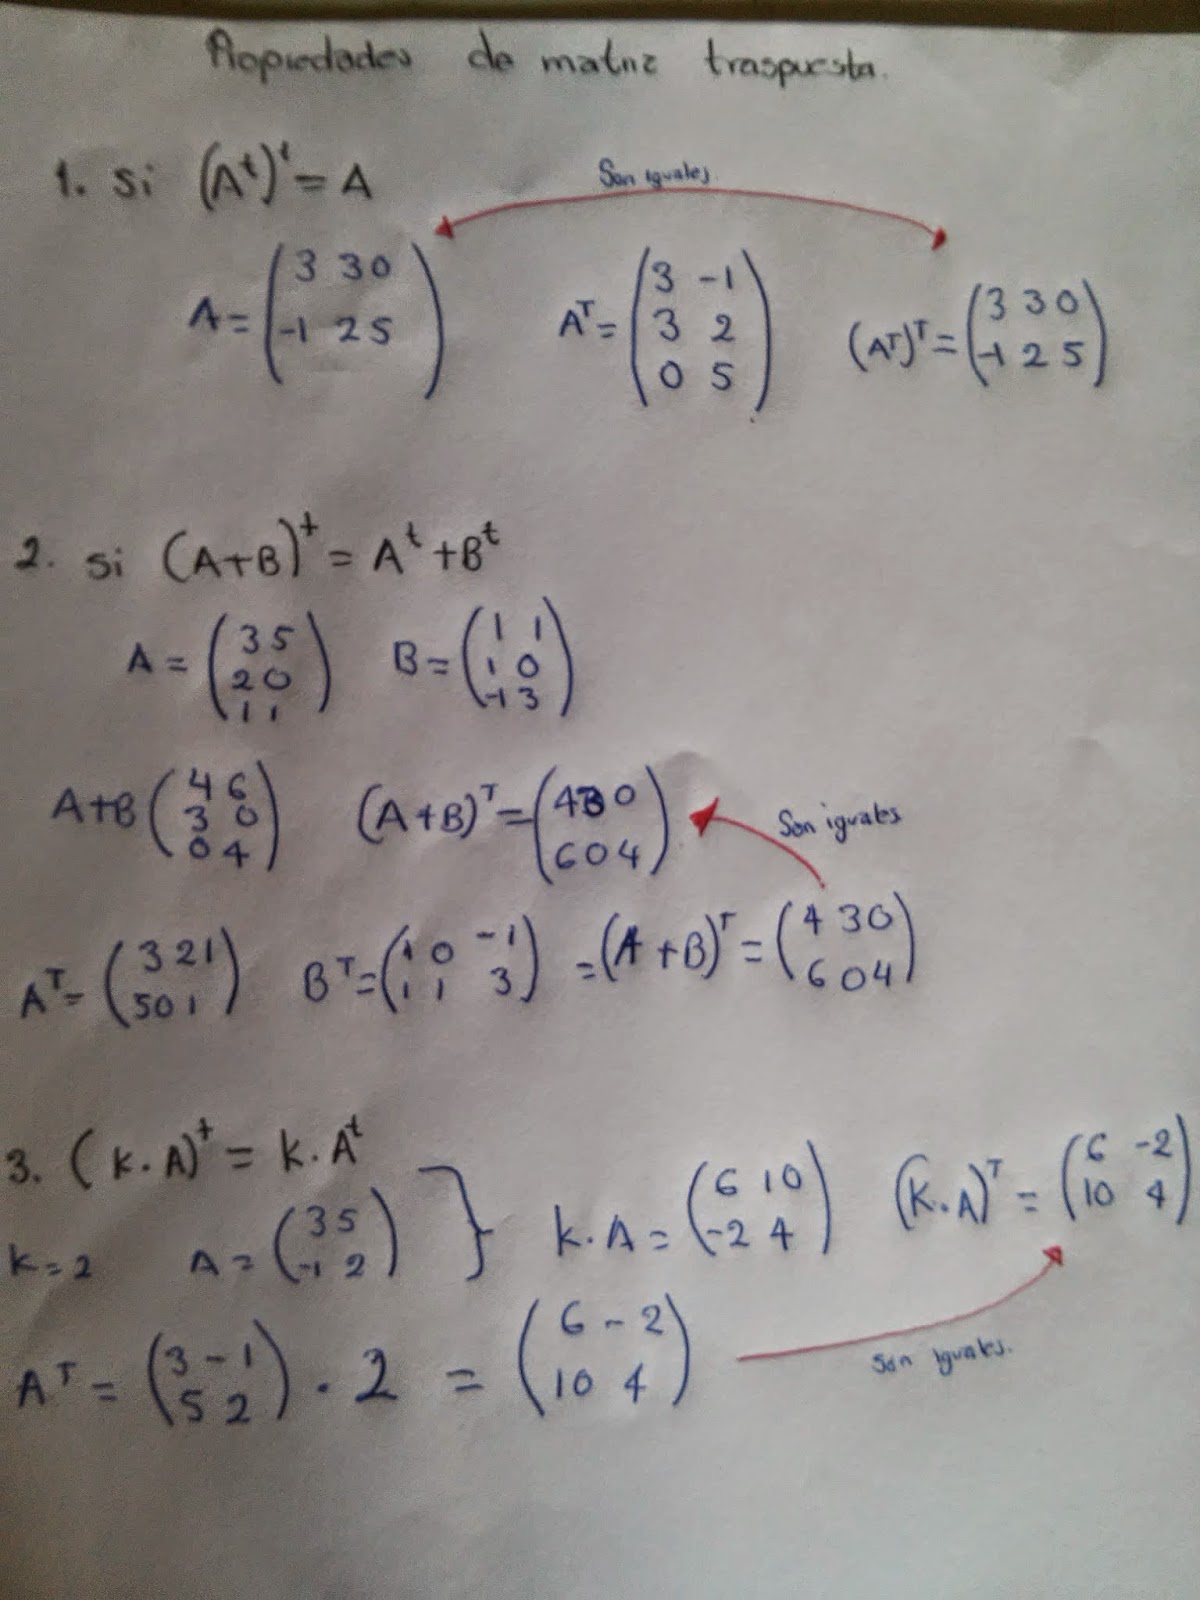 Propiedades de matriz traspuesta.
1. si (Aᵗ)ᵗ = A
Son iguales.
A = (3 3 0
-1 2 5)
Aᵀ = (3 -1
3 2
0 5)
(Aᵀ)ᵀ = (3 3 0
-1 2 5)
2. si (A+B)ᵗ = Aᵗ + Bᵗ
A = (3 5
2 0
1 1)
B = (1 1
1 0
-1 3)
A+B (4 6
3 0
0 4)
(A+B)ᵀ = (4 3 0
6 0 4)
Son iguales
Aᵀ = (3 2 1
5 0 1)
Bᵀ = (1 0 -1
1 1 3)
= (A+B)ᵀ = (4 3 0
6 0 4)
3. (K.A)ᵗ = K.Aᵗ
K = 2
A = (3 5
-1 2) }
K.A = (6 10
-2 4)
(K.A)ᵀ = (6 -2
10 4)
Aᵀ = (3 -1
5 2) . 2 = (6 -2
10 4)
Son iguales.